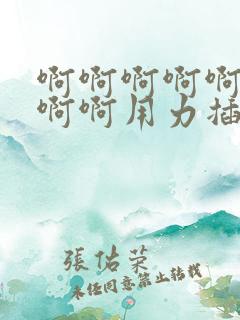 啊啊啊啊啊
啊啊用力插
張佑荣
未经同意禁止转载